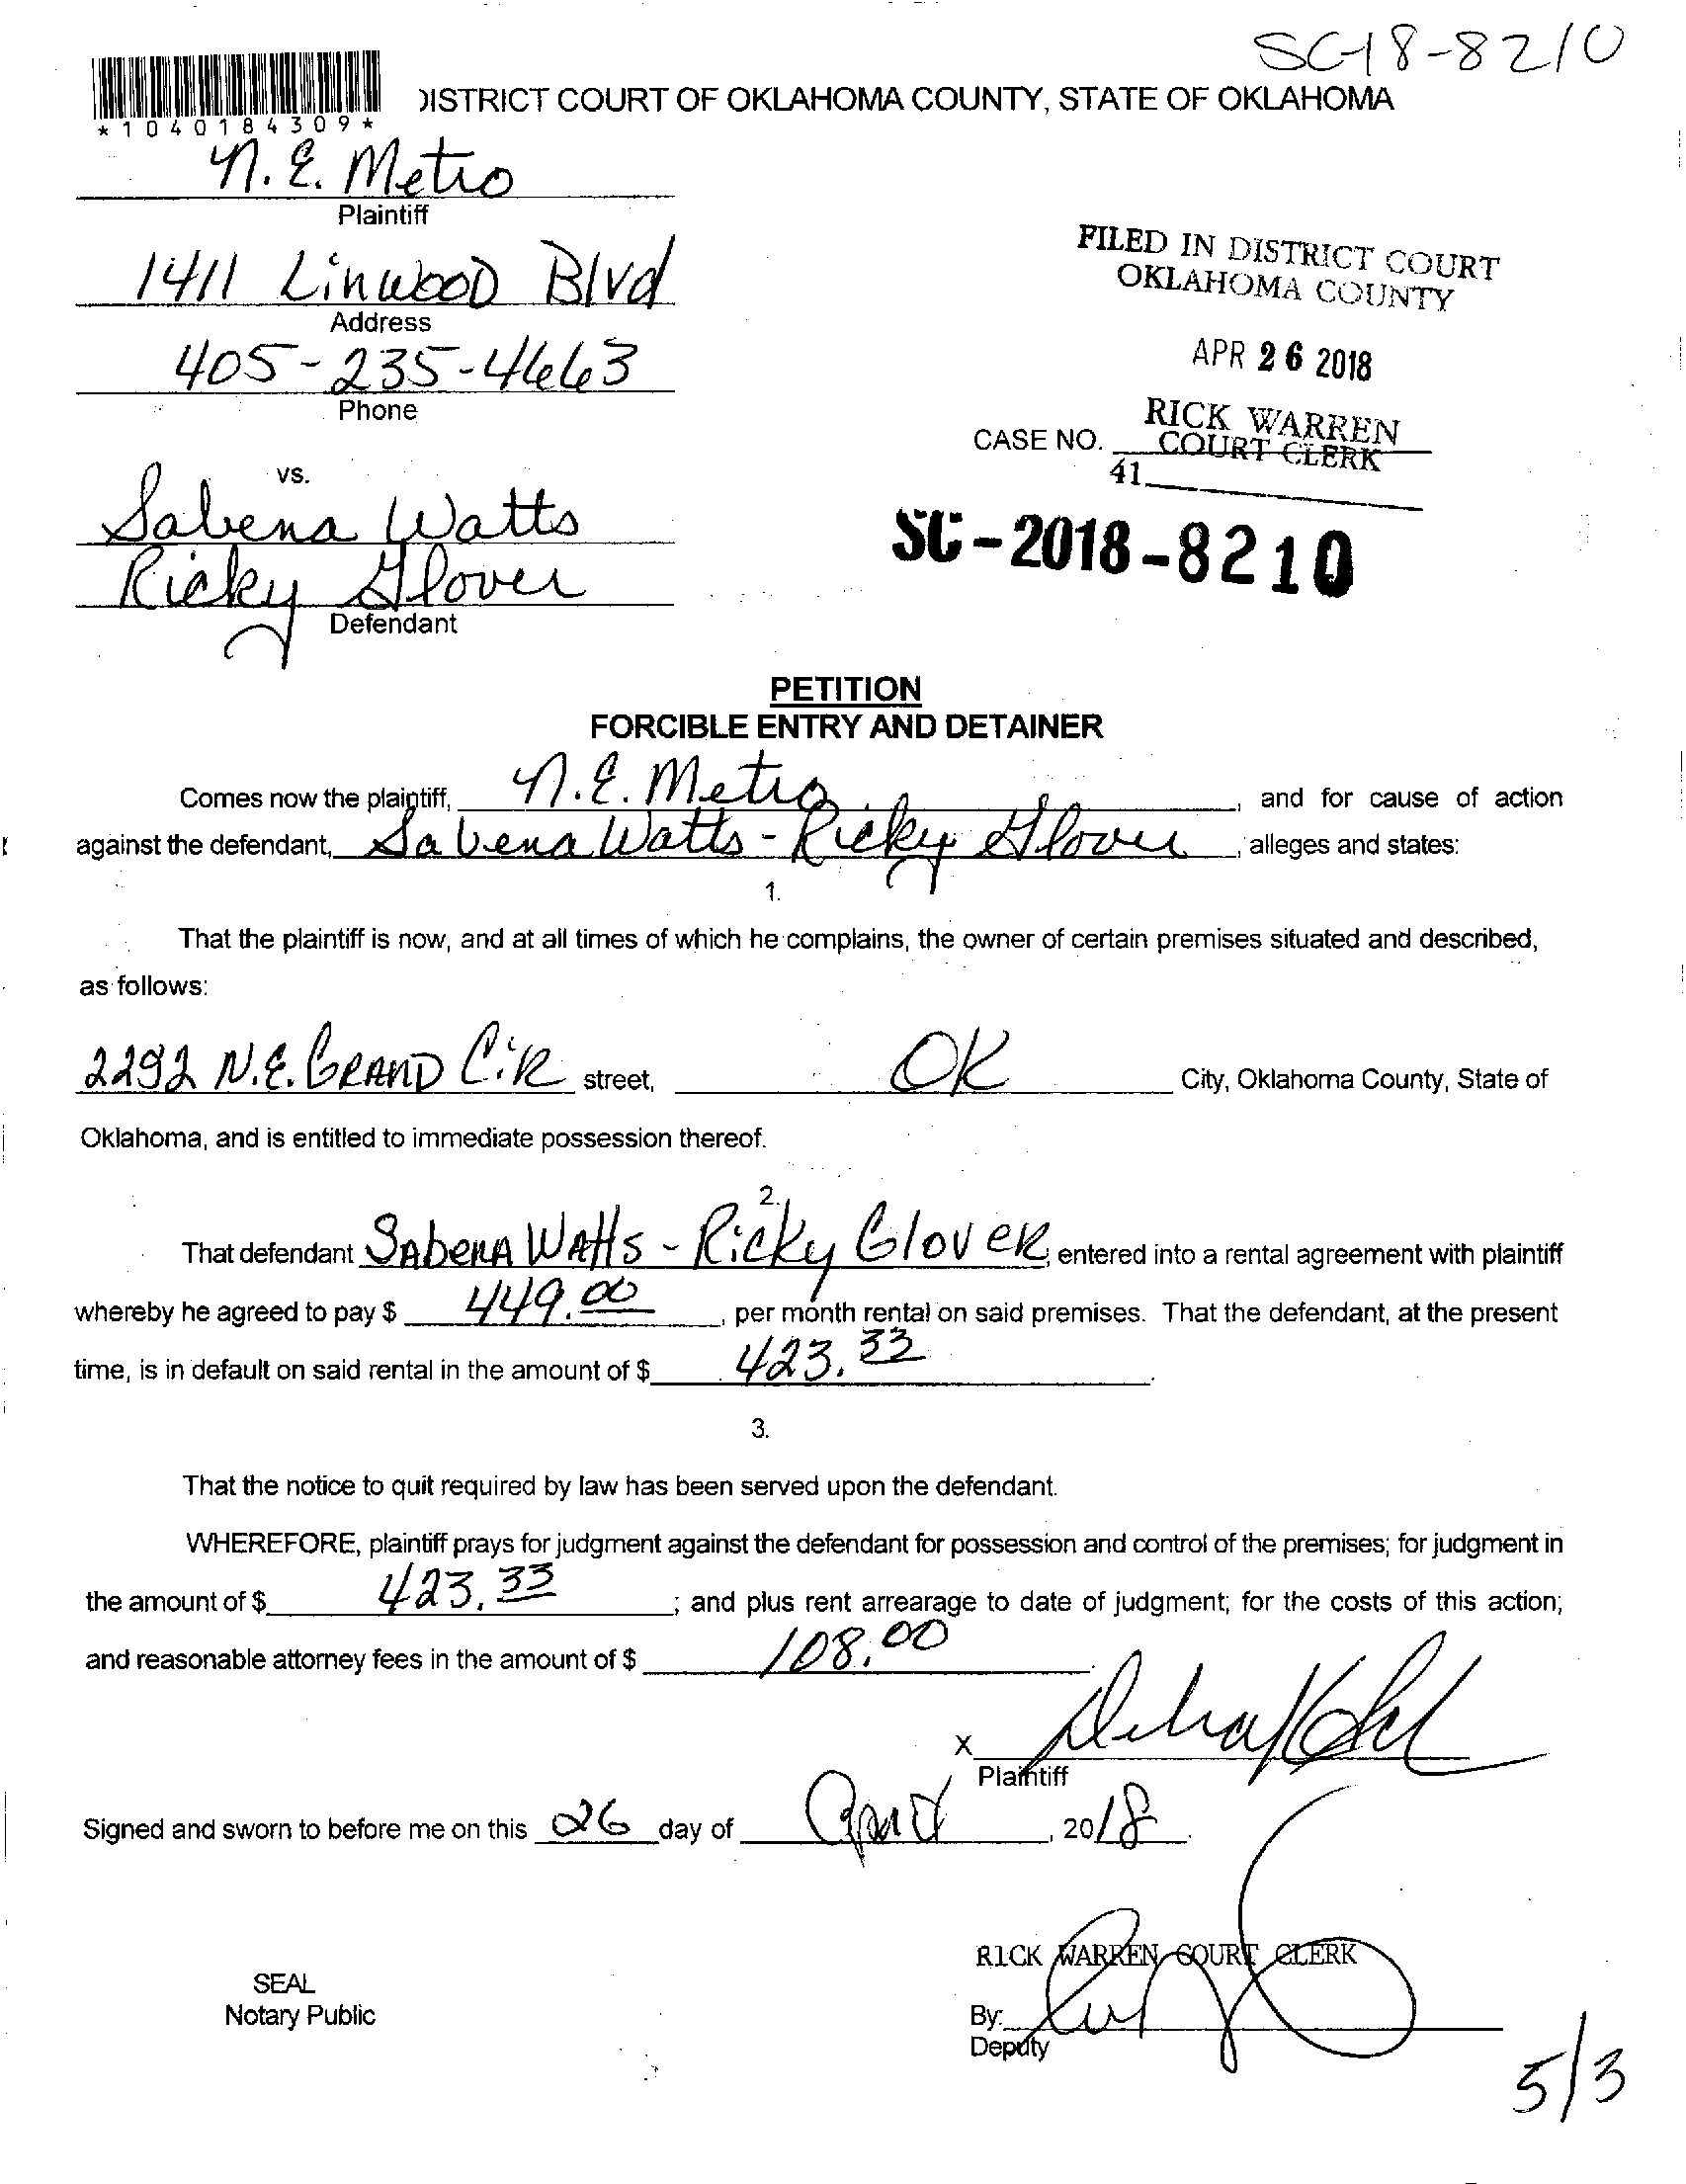 SC-18-8210
*1040184309*
DISTRICT COURT OF OKLAHOMA COUNTY, STATE OF OKLAHOMA
N.E. Metro
Plaintiff
1411 Linwood Blvd
Address
405-235-4663
Phone
FILED IN DISTRICT COURT
OKLAHOMA COUNTY
APR 26 2018
RICK WARREN
COURT CLERK
CASE NO.
41
vs.
Sabena Watts
Ricky Glover
Defendant
SC-2018-8210
PETITION
FORCIBLE ENTRY AND DETAINER
Comes now the plaintiff, N.E. Metro, and for cause of action
against the defendant, Sabena Watts - Ricky Glover, alleges and states:
1.
That the plaintiff is now, and at all times of which he complains, the owner of certain premises situated and described,
as follows:
2292 N.E. GRAND CiR street, OK City, Oklahoma County, State of
Oklahoma, and is entitled to immediate possession thereof.
2.
That defendant SAbenA WAtts - Ricky GlovER, entered into a rental agreement with plaintiff
whereby he agreed to pay $ 449.00, per month rental on said premises. That the defendant, at the present
time, is in default on said rental in the amount of $ 423.33.
3.
That the notice to quit required by law has been served upon the defendant.
WHEREFORE, plaintiff prays for judgment against the defendant for possession and control of the premises; for judgment in
the amount of $ 423.33; and plus rent arrearage to date of judgment; for the costs of this action;
and reasonable attorney fees in the amount of $ 108.00.
X
Plaintiff
Signed and sworn to before me on this 26 day of April, 2018.
RICK WARREN COURT CLERK
SEAL
Notary Public
By:
Deputy
5/3